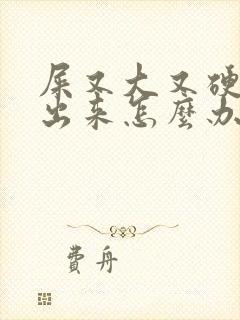 屎又大又硬
出来怎麼办
費舟